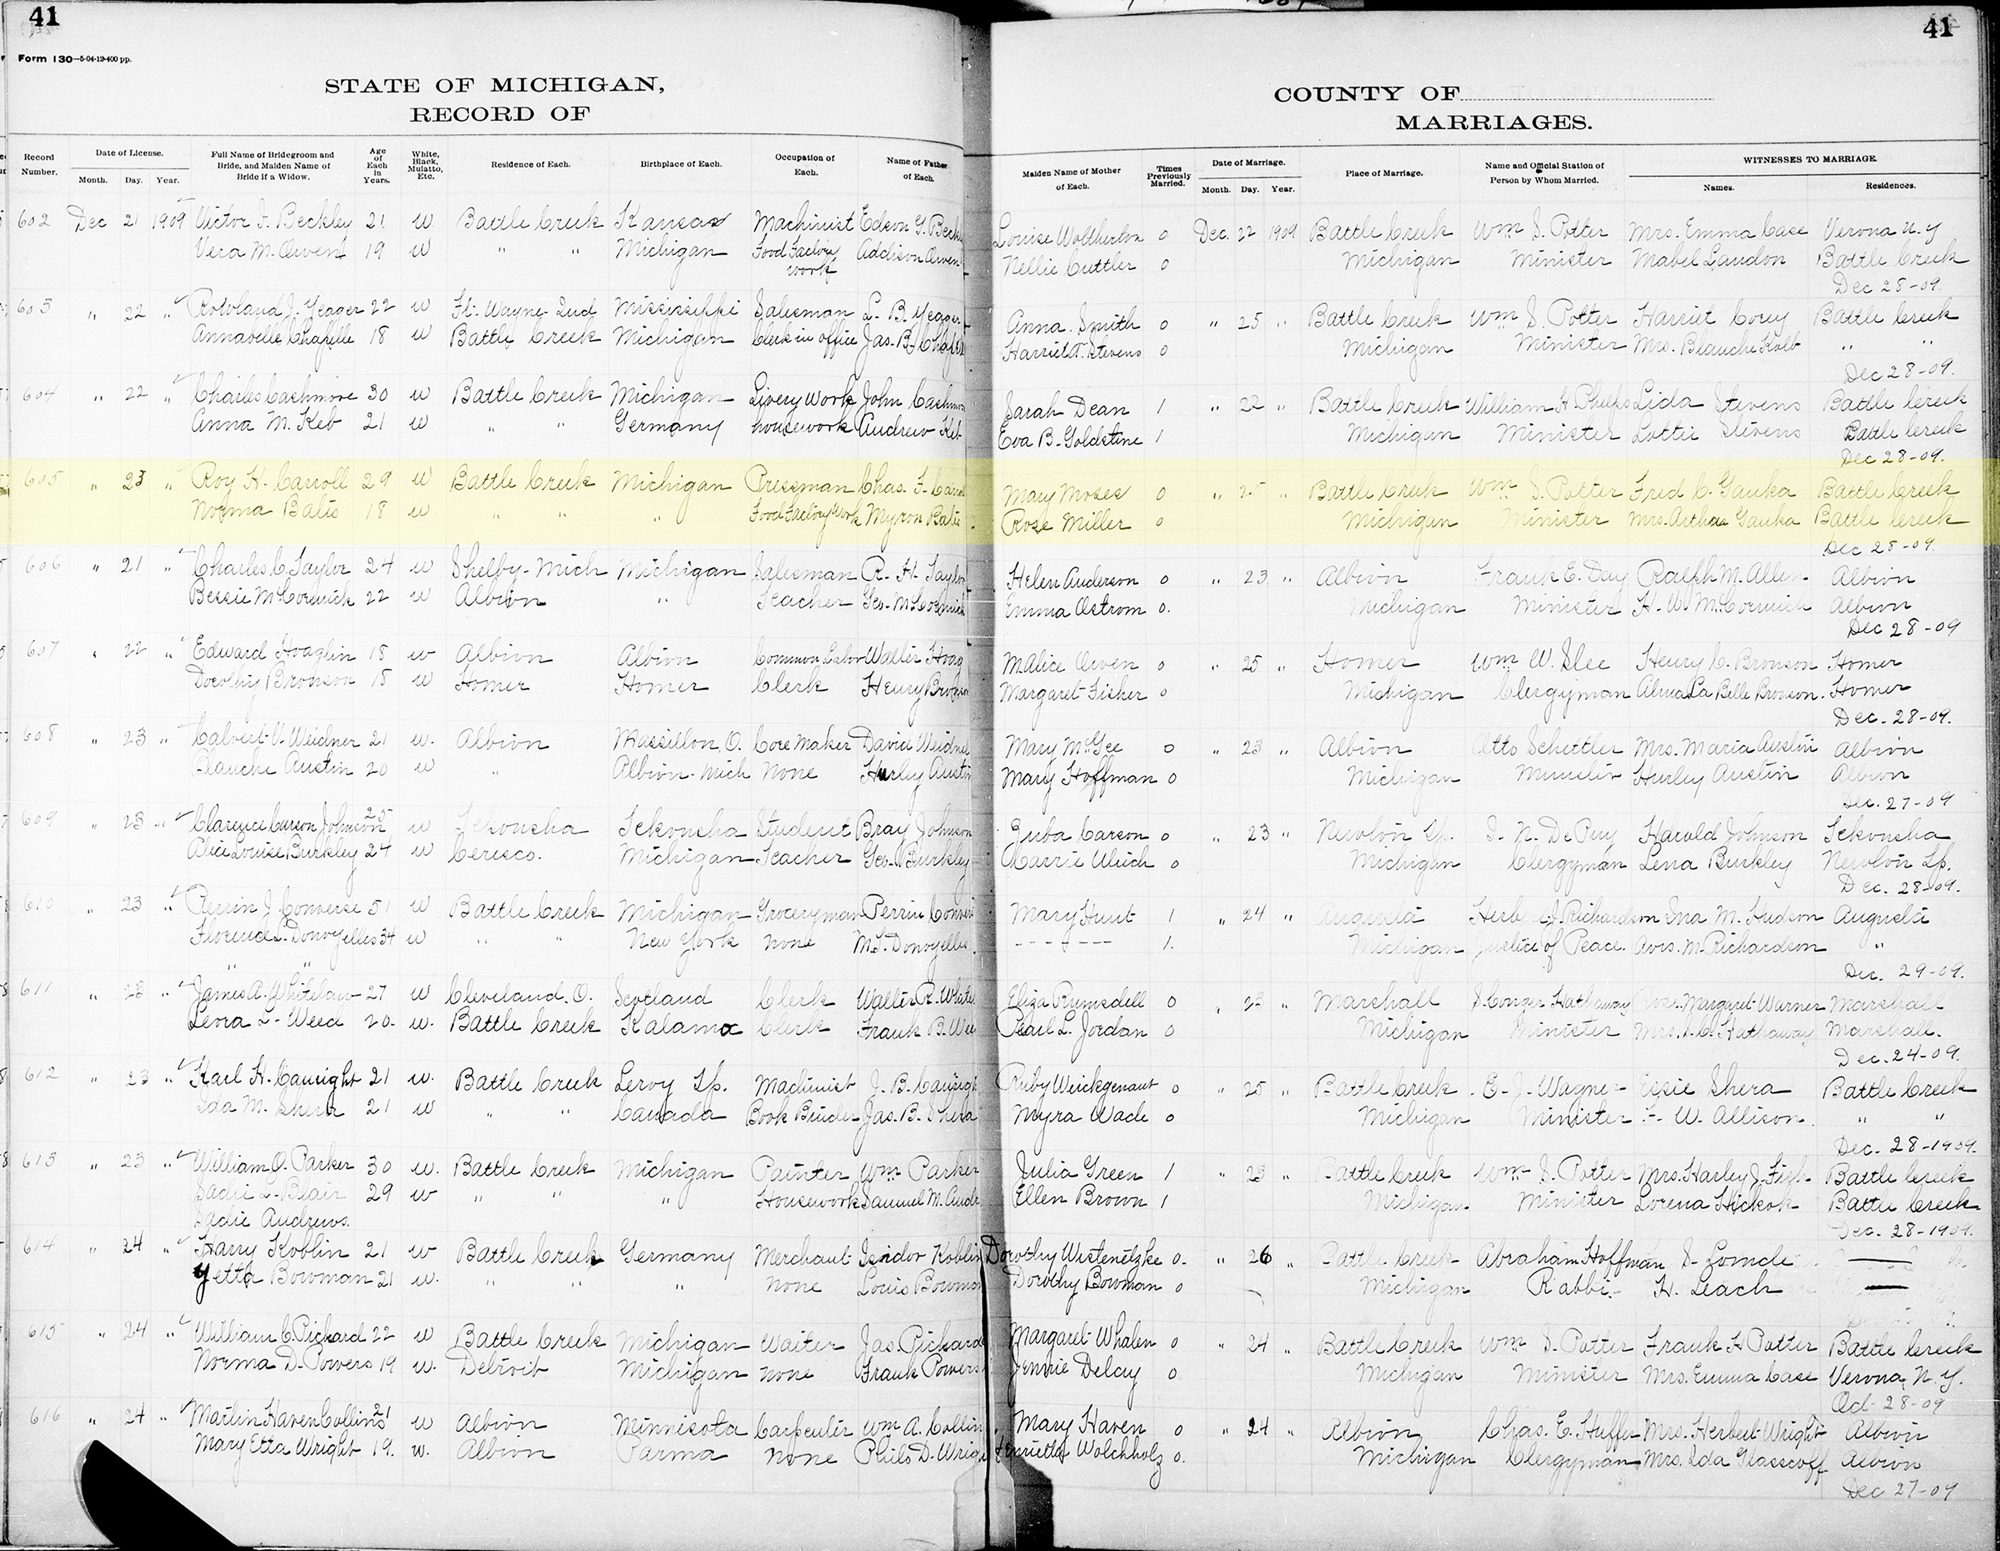 41
41
Form 130—5-04-12-400 pp.
STATE OF MICHIGAN,
RECORD OF
COUNTY OF
MARRIAGES.
Record Number. Date of License. Month. Day. Year. Full Name of Bridegroom and Bride, and Maiden Name of Bride if a Widow. Age of Each in Years. White, Black, Mulatto, Etc. Residence of Each. Birthplace of Each. Occupation of Each. Name of Father of Each. Maiden Name of Mother of Each. Times Previously Married. Date of Marriage. Month. Day. Year. Place of Marriage. Name and Official Station of Person by Whom Married. WITNESSES TO MARRIAGE. Names. Residences.
602 Dec 21 1909 Victor I. Beckley 21 W Battle Creek Kansas Machinist Edson G. Beck Louise Woltherton 0 Dec. 22 1909 Battle Creek Wm S. Potter Mrs. Emma Case Verona N.Y
Vera M. Owens 19 W " " Michigan Food Factory work Addison Owen Nellie Cuttler 0 Michigan Minister Mabel Landon Battle Creek
Dec 28-09.
603 " 22 " Rowland J. Yeager 22 W Ft. Wayne Ind Mississippi Salesman L. B. Yeager Anna Smith 0 " 25 " Battle Creek Wm S. Potter Harriet Corey Battle Creek
Annabelle Chapelle 18 W Battle Creek Michigan Clerk in office Jas. B. Harriet A. Stevens 0 Michigan Minister Mrs. Blanche Kolb " "
Dec 28-09.
604 " 22 " Charles Cashmore 30 W Battle Creek Michigan Livery Work John Cashmo Sarah Dean 1 " 22 " Battle Creek William H Phelps Lida Stevens Battle Creek
Anna M. Keb 21 W " " Germany housework Andrew Keb Eva B. Goldstine 1 Michigan Minister Lottie Stevens Battle Creek
Dec 28-09.
605 " 23 " Roy H. Carroll 29 W Battle Creek Michigan Pressman Chas. F. Carrol Mary Moses 0 " 25 " Battle Creek Wm S. Potter Fred C. Gauka Battle Creek
Norma Batis 18 W " " " Food Factory Work Myron Batis Rose Miller 0 Michigan Minister Mrs. Artha Gauka Battle Creek
Dec 28-09.
606 " 21 " Charles C. Taylor 24 W Shelby-Mich Michigan Salesman R. H. Taylor Helen Anderson 0 " 23 " Albion Frank E. Day Ralph M. Allen Albion
Bessie McCormick 22 W Albion " Teacher Geo. McCormick Emma Ostrom 0. Michigan Minister H. W. McCormick Albion
Dec 28-09
607 " 22 " Edward Hoaglin 18 W Albion Albion Common Labor Walter Hoag M Alice Owen 0 " 25 " Homer Wm W. Slee Henry C. Bronson Homer
Dorothy Bronson 18 W Homer Homer Clerk Henry Brons Margaret Fisher 0 Michigan Clergyman Alma La Belle Bronson Homer
Dec. 28-09.
608 " 23 " Calvert V. Weidner 21 W. Albion Massillon, O. Core Maker David Weidner Mary McGee 0 " 23 " Albion Otto Schettler Mrs. Maria Austin Albion
Blanche Austin 20 W " Albion-Mich None Hurley Austin Mary Hoffman 0 Michigan Minister Hurley Austin Albion
Dec. 27-09
609 " 23 " Clarence Carson Johnson 25 W Tekonsha Tekonsha Student Bray Johnson Zuba Carson 0 " 23 " Newton Tp. I. N. DePuy Harold Johnson Tekonsha
Alice Louise Burkley 24 W Ceresco. Michigan Teacher Geo. Burkley Carrie Ulrich 0 Michigan Clergyman Lena Burkley Newton Tp.
Dec. 28-09.
610 " 23 " Perrin J. Converse 51 W Battle Creek Michigan Groceryman Perrin Convers Mary Hunt 1 " 24 " Augusta Herbert J. Richardson Ina M. Hudson Augusta
Florence L. Donvyelles 34 W " " New York None M. L. Donvyelles ------- 1. Michigan Justice of Peace. Avis. M. Richardson "
" " Dec. 29-09.
611 " 23 " James A. Whitelaw 27 W Cleveland. O. Scotland Clerk Walter R. White Eliza Rumsdell 0 " 23 " Marshall S. Conger Hathaway Margaret Warner Marshall
Leora L. Weed 20. W. Battle Creek Kalamx Clerk Frank B. Wee Pearl L. Jordan 0 Michigan Minister Mrs. S. C. Hathaway Marshall.
Dec. 24-09.
612 " 23 " Karl H. Cauright 21 W. Battle Creek Leroy Tp. Machinist J. B. Cauright Ruby Weickgenant 0 " 25 " Battle Creek E. J. Wagner Elsie Shera Battle Creek
Ida M. Shera 21 W " " Canada Book Binder Jas. B. Shera Myra Wade 0 Michigan Minister F. W. Allison " "
Dec. 28-1909.
613 " 23 " William O. Parker 30 W. Battle Creek Michigan Painter Wm Parker Julia Green 1 " 23 " Battle Creek Wm S. Potter Mrs. Harley J. Fish Battle Creek
Sadie L. Blair 29 W " " " Housework Samuel M. Andr Ellen Brown 1 Michigan Minister Lorena Hickok Battle Creek
Sadie Andrews. Dec. 28-1909.
614 " 24 " Harry Koblin 21 W Battle Creek Germany Merchant Isador Koblin Dorothy Wistenetzke 0. " 26 " Battle Creek Abraham Hoffman S. Lomde
Yetta Bowman 21 W. " " " None Louis Bowman Dorothy Bowman 0 Michigan Rabbi H. Leach
615 " 24 " William C Pickard 22 W Battle Creek Michigan Waiter Jas. Pickard Margaret Whalen 0 " 24 " Battle Creek Wm S. Potter Frank H Potter Battle Creek
Norma D. Powers 19 W. Detroit Michigan None Frank Powers Jennie Delay 0 Michigan Minister Mrs. Emma Case Verona N.Y.
Oct 28-09
616 " 24 " Martin Haven Collins 21 W Albion Minnisota Carpenter Wm A. Collin Mary Haven 0 " 24 " Albion Chas. E. Huffer Mrs. Herbert Wright Albion
Mary Etta Wright 19. W. Albion Parma None Philo D. Wrigh Henrietta Wolchholz 0. Michigan Clergyman Mrs. Ida Glasscoff Albion
Dec 27-09